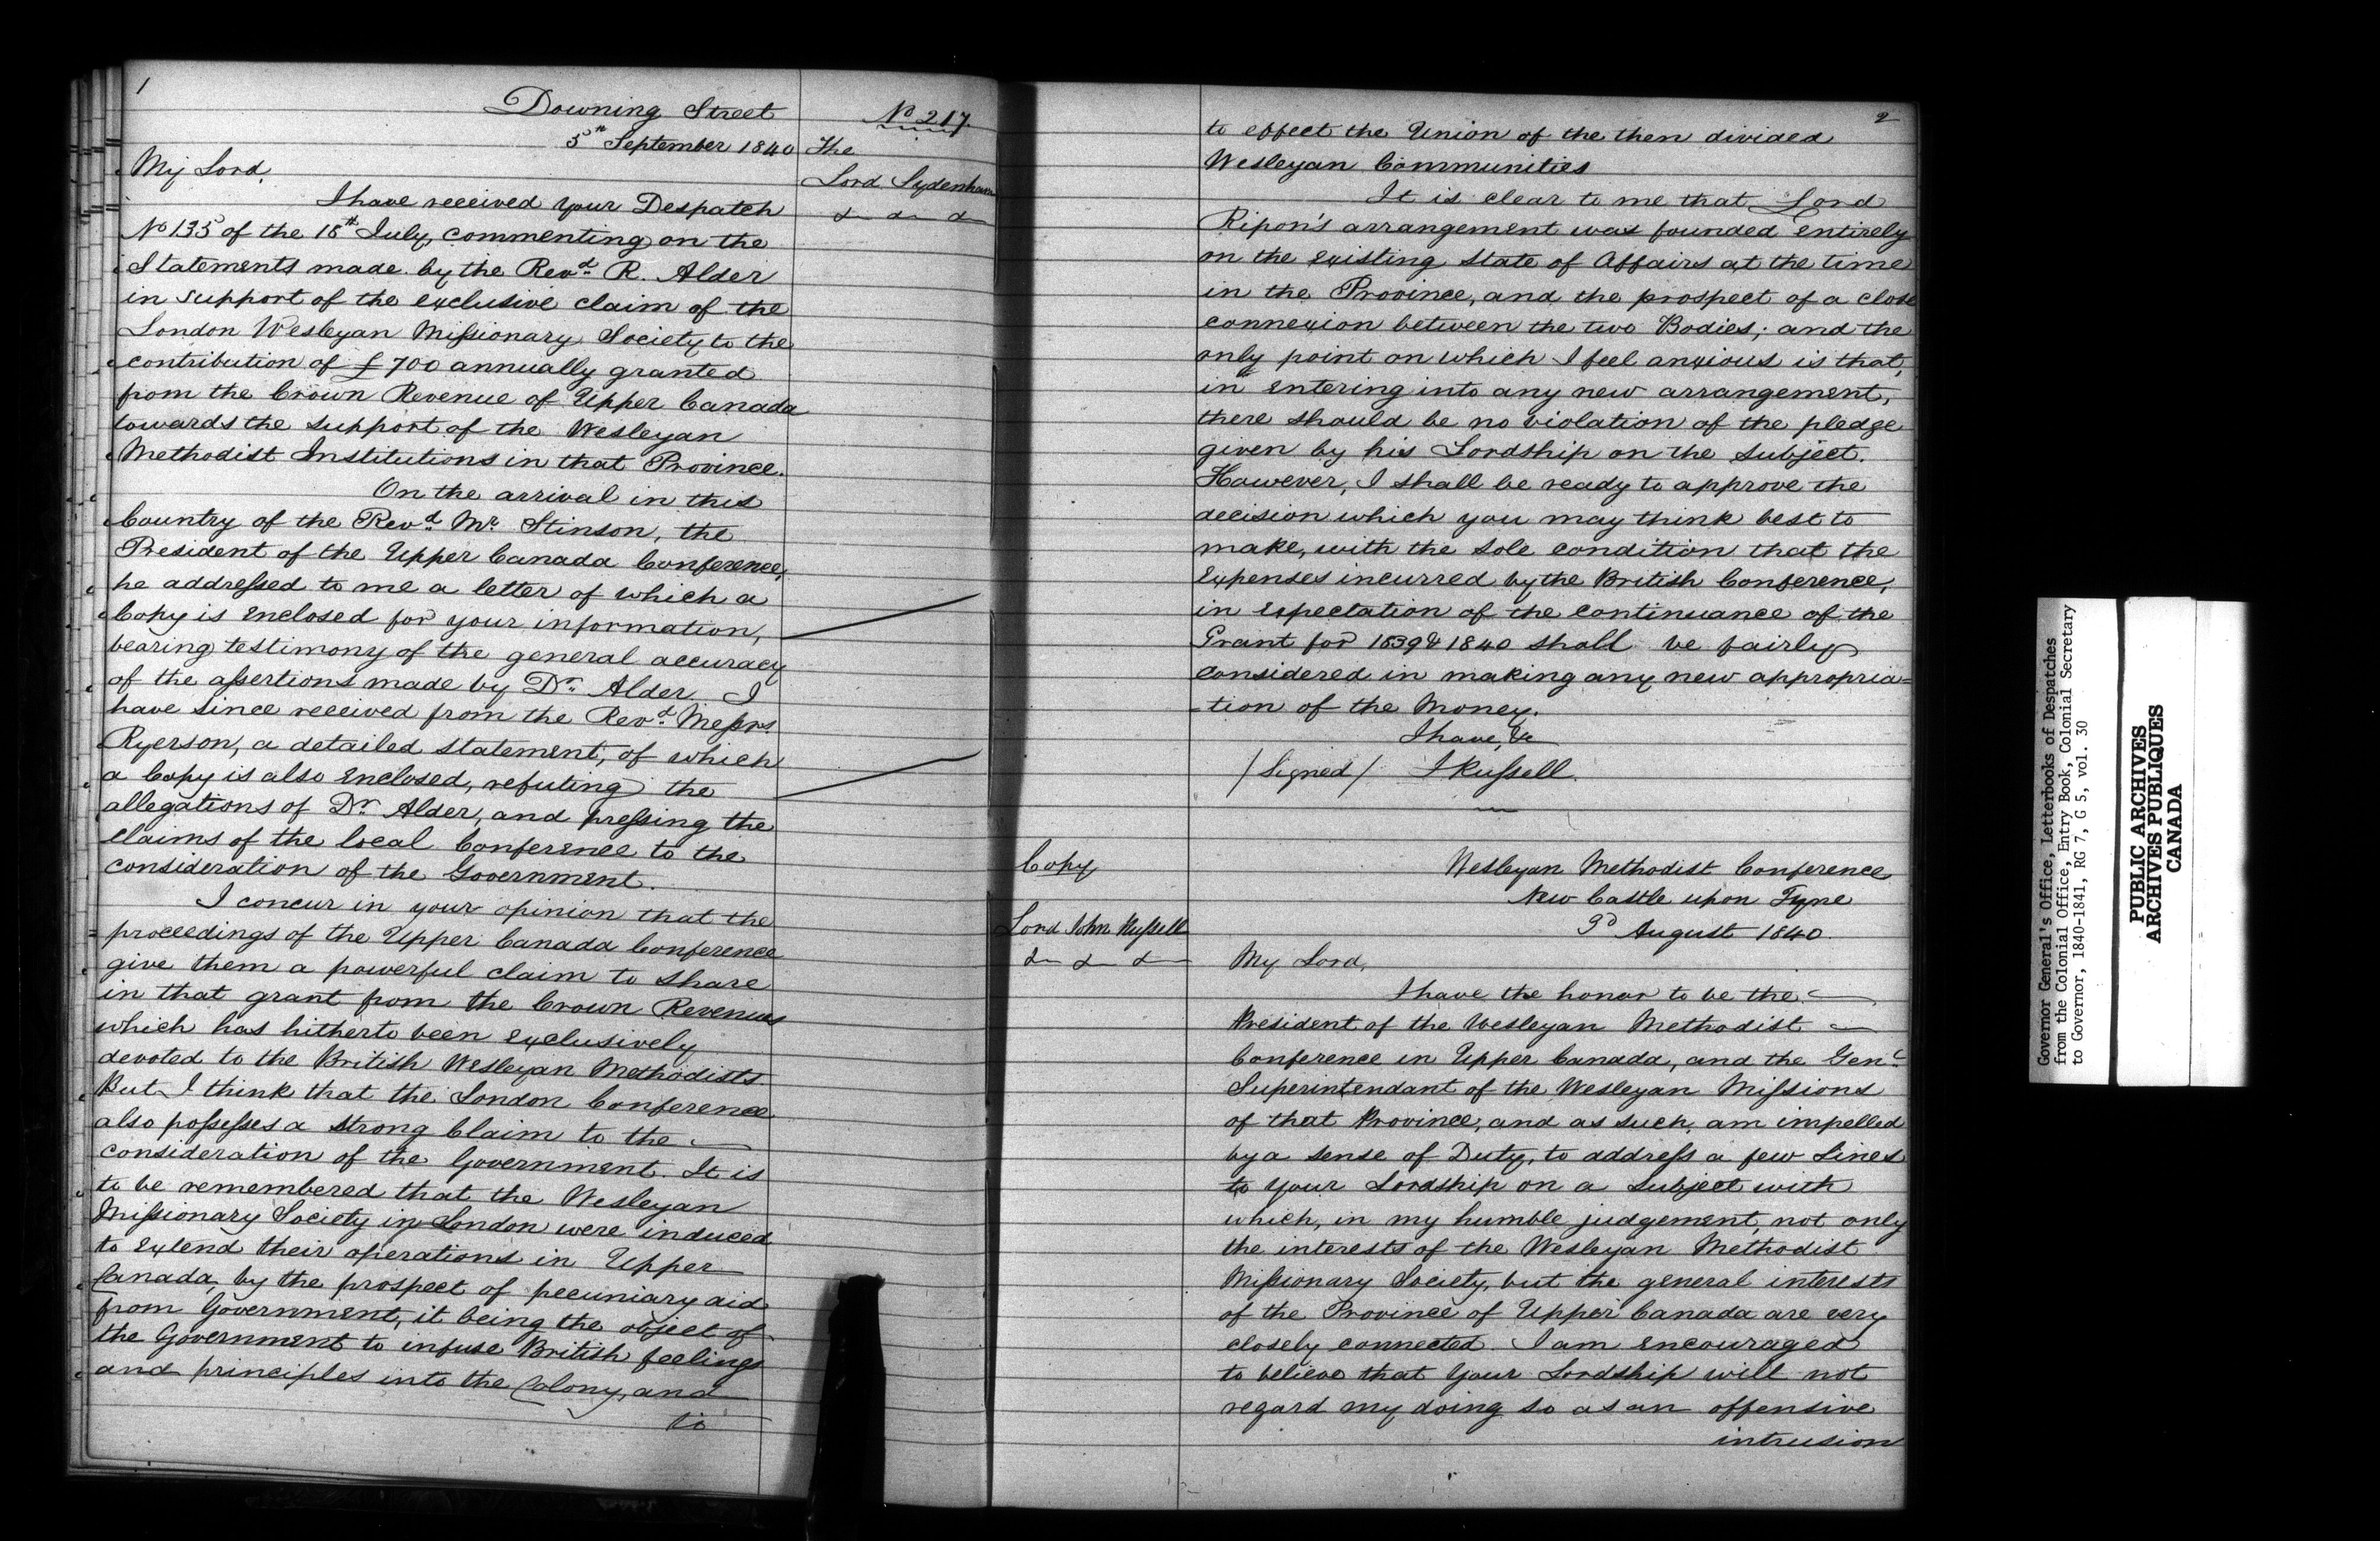 1
Downing Street
5th September 1840
No 217.
The
Lord Sydenham
&c &c &c
My Lord,
I have received your Despatch
No 135 of the 18th July, commenting on the
Statements made by the Revd. R. Alder
in support of the exclusive claim of the
London Wesleyan Missionary Society to the
contribution of £700 annually granted
from the Crown Revenue of Upper Canada
towards the support of the Wesleyan
Methodist Institutions in that Province.
On the arrival in this
Country of the Revd. Mr. Stinson, the
President of the Upper Canada Conference,
he addressed to me a letter of which a
Copy is enclosed for your information,
bearing testimony of the general accuracy
of the assertions made by Dr. Alder I
have since received from the Revd. Messrs.
Ryerson, a detailed statement, of which
a Copy is also enclosed, refuting the
allegations of Dr. Alder, and pressing the
claims of the local Conference to the
consideration of the Government.
I concur in your opinion that the
proceedings of the Upper Canada Conference
give them a powerful claim to share
in that grant from the Crown Revenues
which has hitherto been exclusively
devoted to the British Wesleyan Methodists.
But I think that the London Conference
also possesses a strong Claim to the
consideration of the Government. It is
to be remembered that the Wesleyan
Missionary Society in London were induced
to extend their operations in Upper
Canada by the prospect of pecuniary aid
from Government, it being the object of
the Government to infuse British feelings
and principles into the Colony, and
to
2
to effect the Union of the then divided
Wesleyan Communities
It is clear to me that Lord
Ripon's arrangement was founded entirely
on the existing state of Affairs at the time
in the Province, and the prospect of a close
connexion between the two Bodies; and the
only point on which I feel anxious is that,
in entering into any new arrangement,
there should be no violation of the pledge
given by his Lordship on the subject.
However, I shall be ready to approve the
decision which you may think best to
make, with the sole condition that the
expenses incurred by the British Conference,
in expectation of the continuance of the
Grant for 1839 & 1840 shall be fairly
considered in making any new appropria=
-tion of the Money.
I have, &c
/Signed/ J Russell.
Copy
Wesleyan Methodist Conference
New Castle upon Tyne
3d August 1840.
Lord John Russell
&c &c &c
My Lord,
I have the honor to be the
President of the Wesleyan Methodist
Conference in Upper Canada, and the Genl.
Superintendant of the Wesleyan Missions
of that Province, and as such, am impelled
by a sense of Duty, to address a few Lines
to your Lordship on a subject with
which, in my humble judgement, not only
the interests of the Wesleyan Methodist
Missionary Society, but the general interests
of the Province of Upper Canada are very
closely connected. I am encouraged
to believe that Your Lordship will not
regard my doing so as an offensive
intrusion
Governor General's Office, Letterbooks of Despatches
from the Colonial Office, Entry Book, Colonial Secretary
to Governor, 1840-1841, RG 7, G 5, vol. 30
PUBLIC ARCHIVES
ARCHIVES PUBLIQUES
CANADA